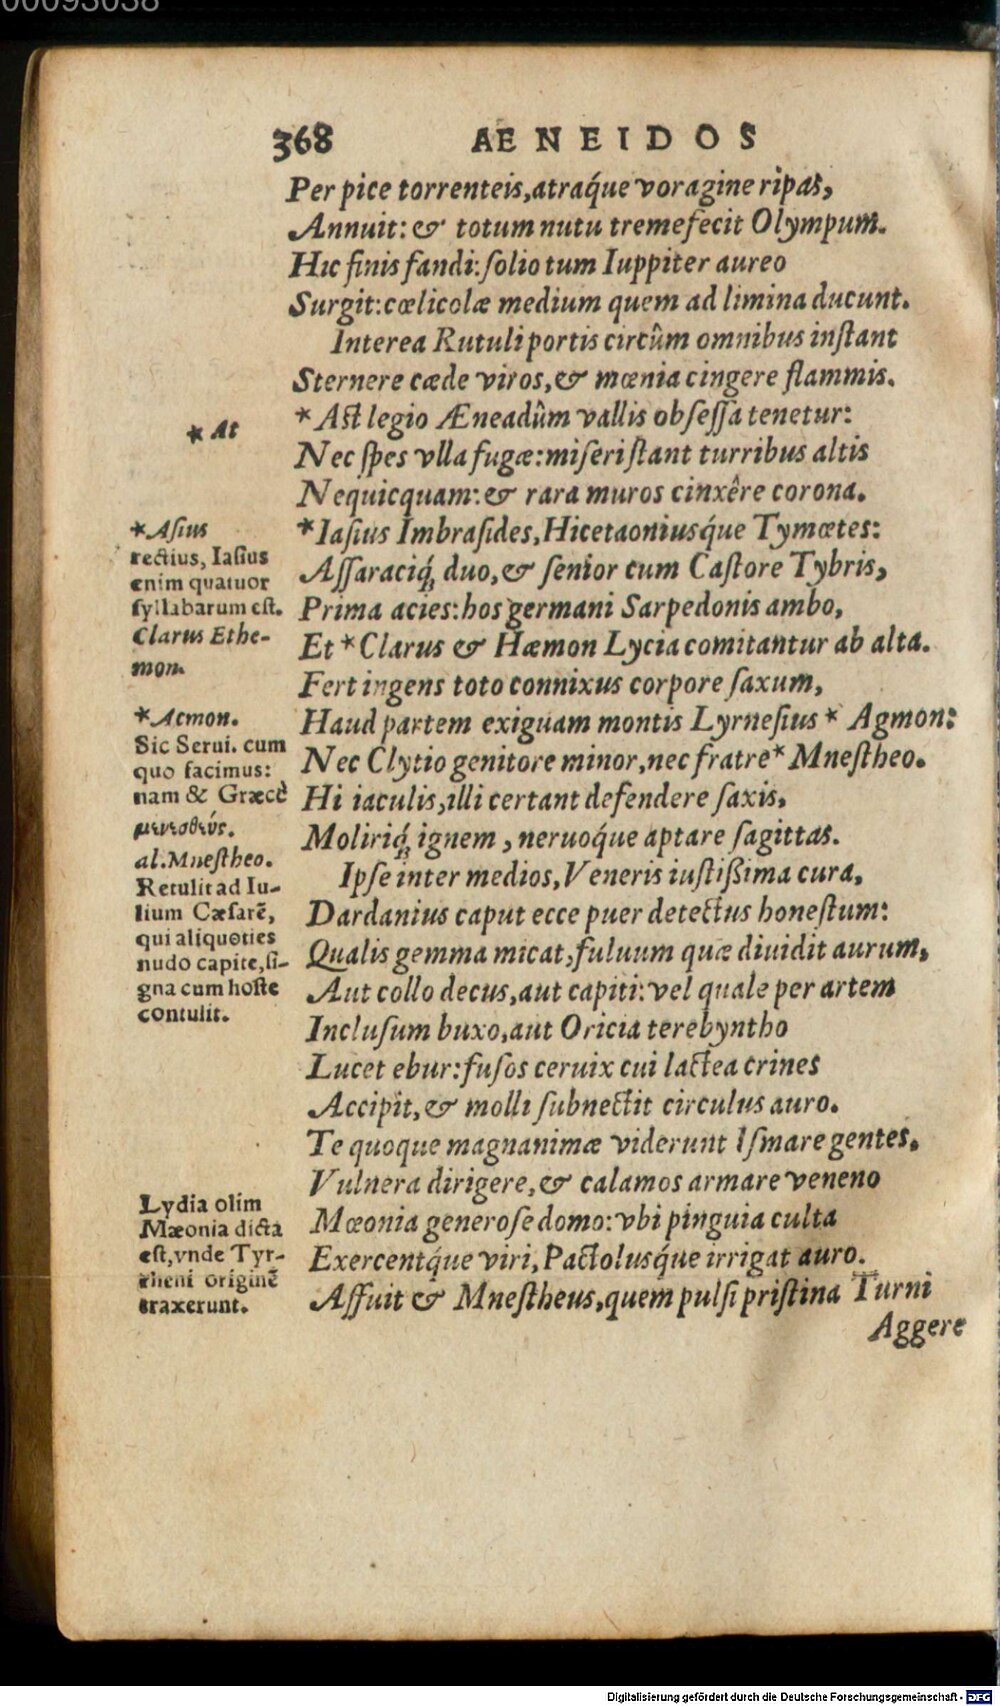 00093038
368 AENEIDOS
Per pice torrenteis,atraq́ue voragine ripas,
Annuit: & totum nutu tremefecit Olympum.
Hic finis fandi:ſolio tum Iuppiter aureo
Surgit:cœlicolæ medium quem ad limina ducunt.
Interea Rutuli portis circûm omnibus inſtant
Sternere cæde viros,& mœnia cingere flammis.
*Aſt legio Æneadûm vallis obſeſſa tenetur:
Nec ſpes vlla fugæ:miſeri ſtant turribus altis
Nequicquam:& rara muros cinxêre corona.
*Iaſius Imbraſides,Hicetaoniusq́ue Tymœtes:
Aſſaraciq́; duo,& ſenior cum Caſtore Tybris,
Prima acies:hos germani Sarpedonis ambo,
Et *Clarus & Hæmon Lycia comitantur ab alta.
Fert ingens toto connixus corpore ſaxum,
Haud partem exiguam montis Lyrneſius * Agmon:
Nec Clytio genitore minor,nec fratre* Mneſtheo.
Hi iaculis,illi certant defendere ſaxis,
Moliriq́; ignem , neruoq́ue aptare ſagittas.
Ipſe inter medios,Veneris iuſtißima cura,
Dardanius caput ecce puer detectus honeſtum:
Qualis gemma micat,fuluum quæ diuidit aurum,
Aut collo decus,aut capiti:vel quale per artem
Incluſum buxo,aut Oricia terebyntho
Lucet ebur:fuſos ceruix cui lactea crines
Accipit,& molli ſubnectit circulus auro.
Te quoque magnanimæ viderunt Iſmare gentes,
Vulnera dirigere,& calamos armare veneno
Mœonia generoſe domo:vbi pinguia culta
Exercentq́ue viri, Pactolusq́ue irrigat auro.
Affuit & Mneſtheus,quem pulſi priſtina Turni
Aggere
* At
*Aſius
rectius, Iaſius
enim quatuor
ſyllabarum eſt.
Clarus Ethe-
mon.
*Acmon.
Sic Serui. cum
quo facimus:
nam & Græcè
μενεσθεύς.
al.Mneſtheo.
Retulit ad Iu-
lium Cæſarē,
qui aliquoties
nudo capite,ſi-
gna cum hoſte
contulit.
Lydia olim
Mæonia dicta
eſt,vnde Tyr-
rheni originē
traxerunt.
Digitalisierung gefördert durch die Deutsche Forschungsgemeinschaft - DFG